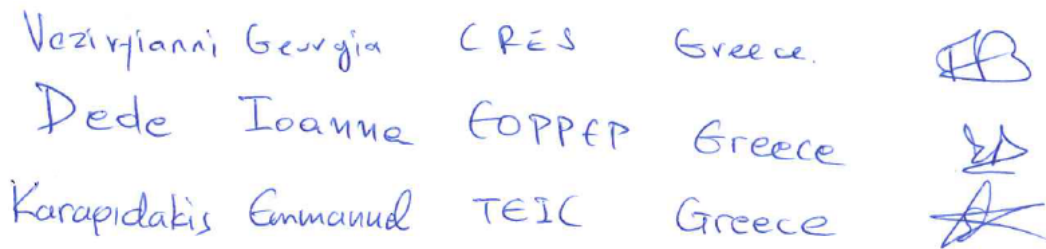 Vezirgianni Georgia CRES Greece.
Dede Ioanna EOPPEP Greece
Karapidakis Emmanuel TEIC Greece